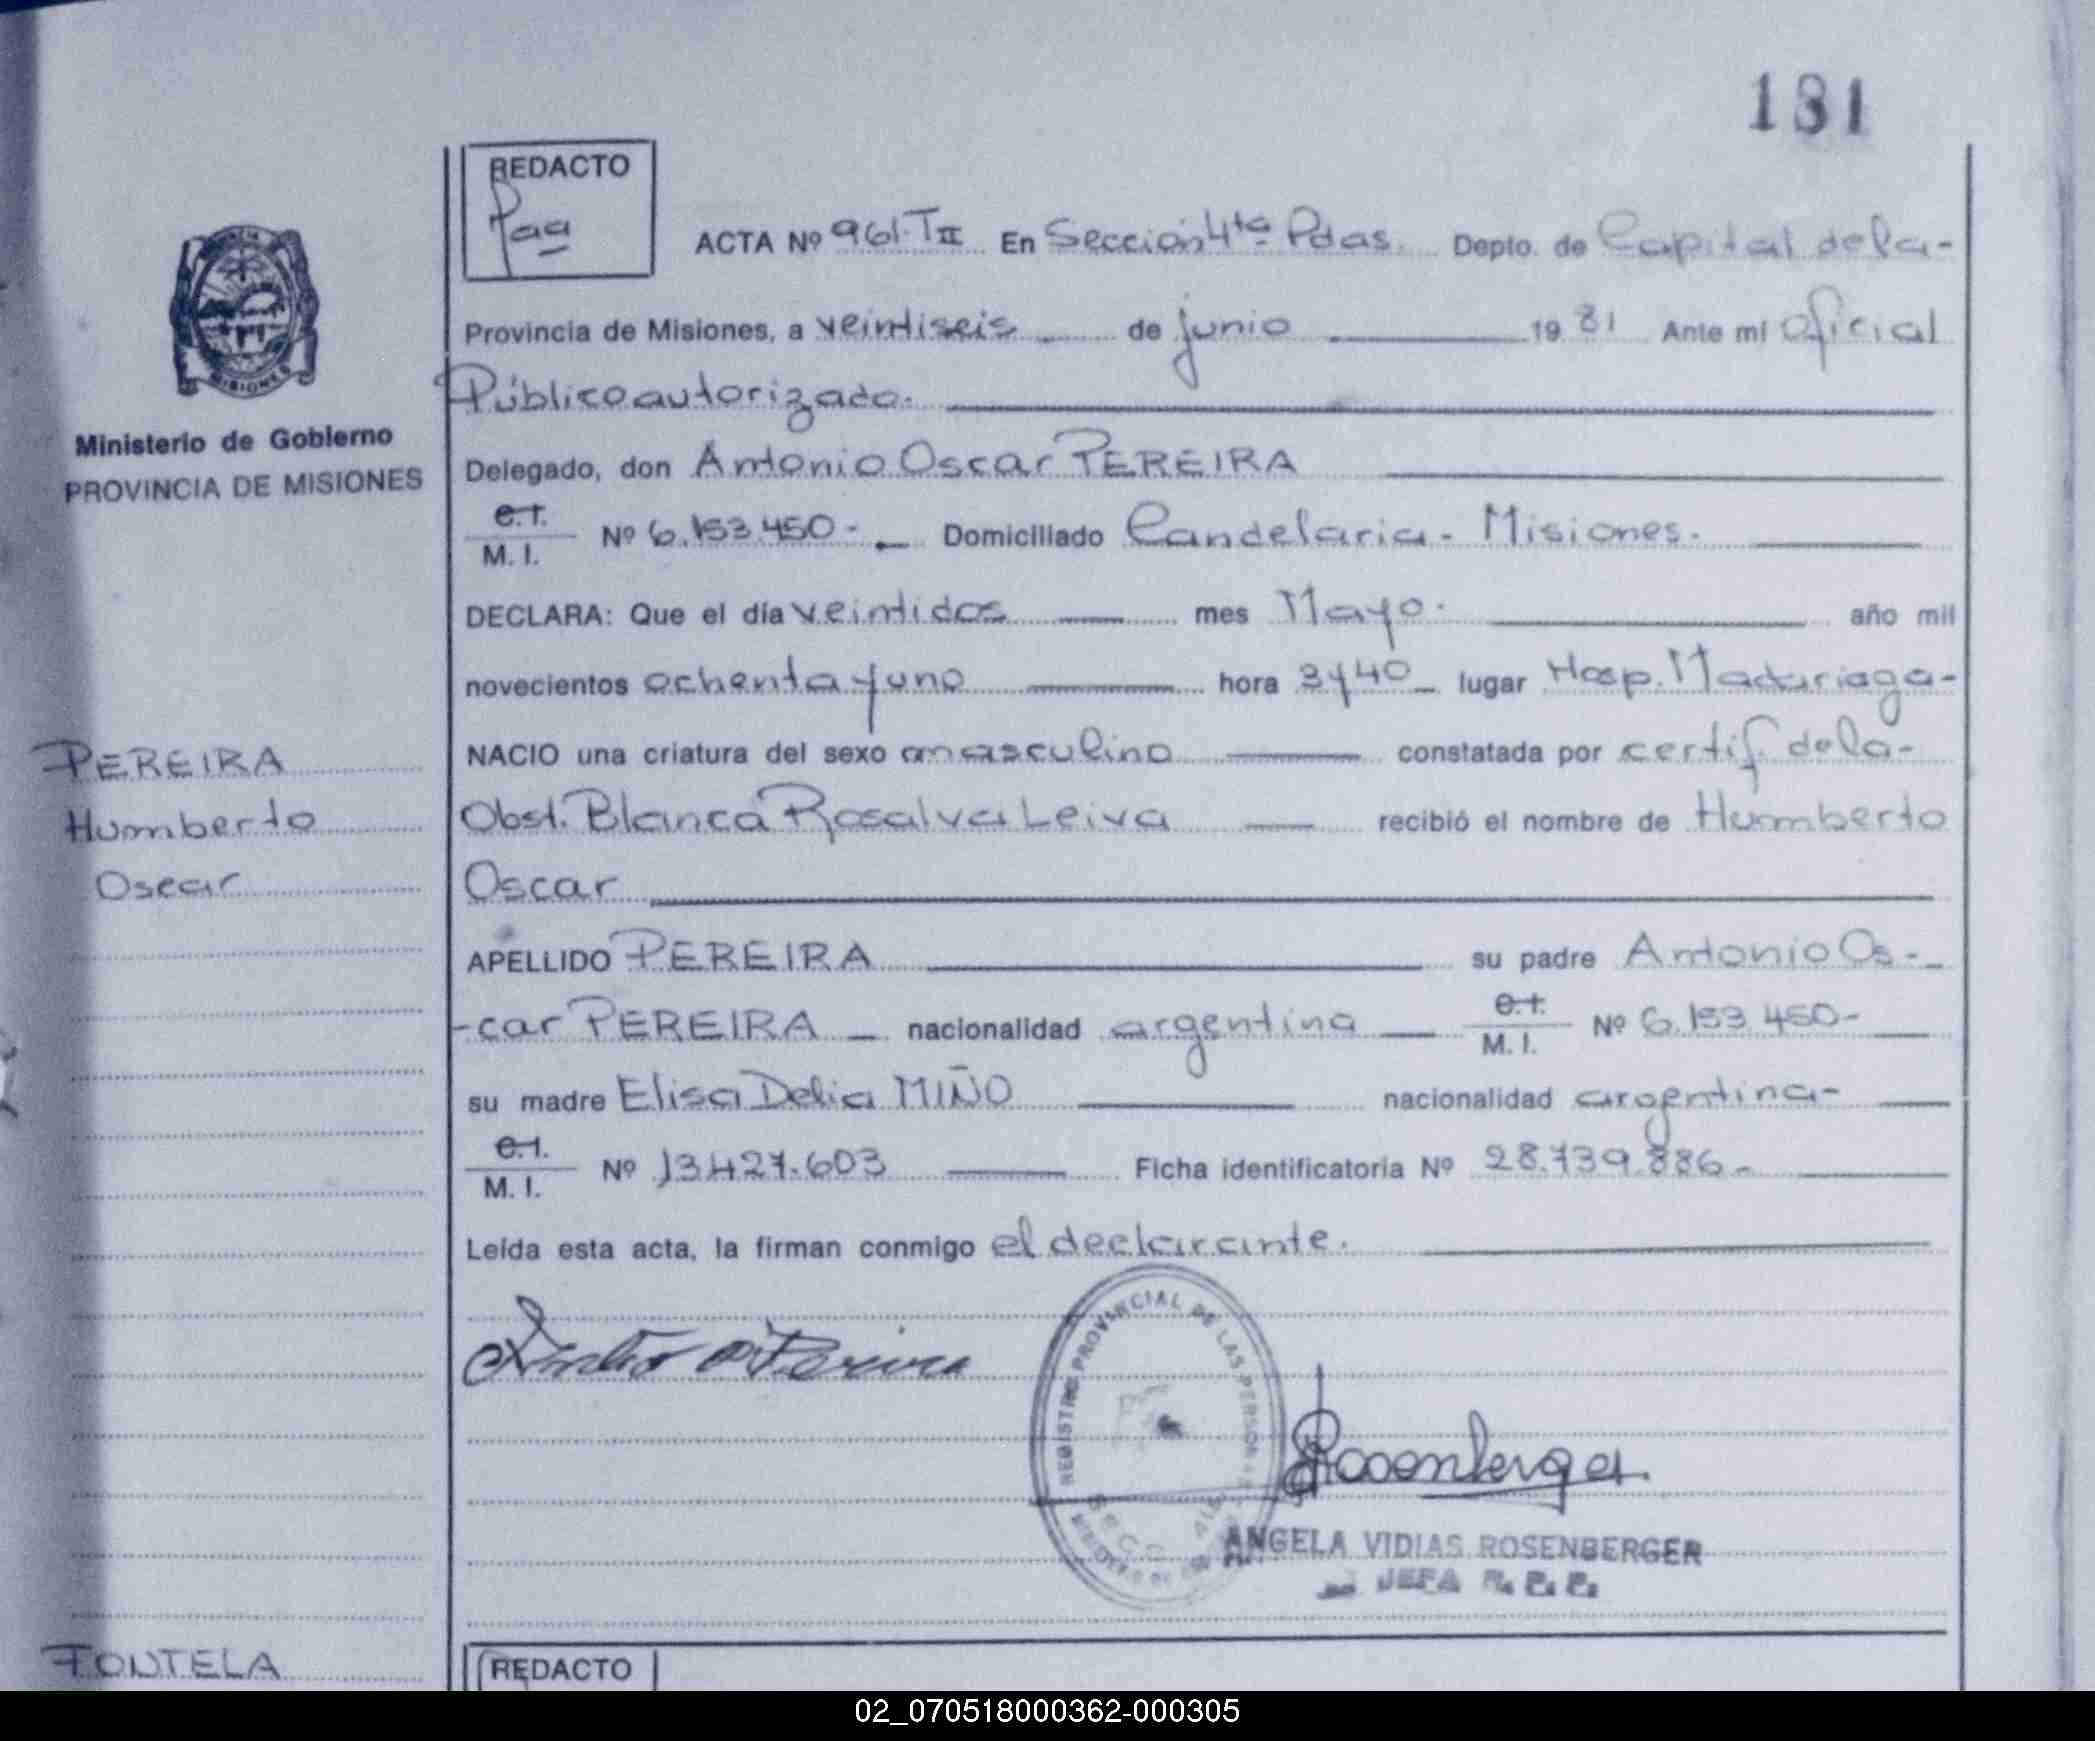 131
REDACTO
Paa
ACTA Nº 961-TII En Sección 4ta Pdas. Depto. de Capital de la-
Provincia de Misiones, a veintiseis de junio 19 81 Ante mí Oficial
Público autorizado.
Delegado, don Antonio Oscar PEREIRA
C.I.
M. I. Nº 6.153.450- Domiciliado Candelaria - Misiones.
DECLARA: Que el día veintidos mes Mayo. año mil
novecientos ochenta y uno hora 3 y 40 lugar Hosp. Madariaga-
NACIO una criatura del sexo masculino constatada por certif. de la-
Obst. Blanca Rosalva Leiva recibió el nombre de Humberto
Oscar
APELLIDO PEREIRA su padre Antonio Os-
-car PEREIRA nacionalidad argentina C.I. M. I. Nº 6.153.450-
su madre Elisa Delia MIÑO nacionalidad argentina-
C.I.
M. I. Nº 13.427.603 Ficha identificatoria Nº 28.739.886-
Leída esta acta, la firman conmigo el declarante.
REGISTRO PROVINCIAL DE LAS PERSONAS
SECC
ANGELA VIDIAS ROSENBERGER
JEFA
MISIONES
Ministerio de Gobierno
PROVINCIA DE MISIONES
PEREIRA
Humberto
Oscar
FONTELA
REDACTO
02_070518000362-000305